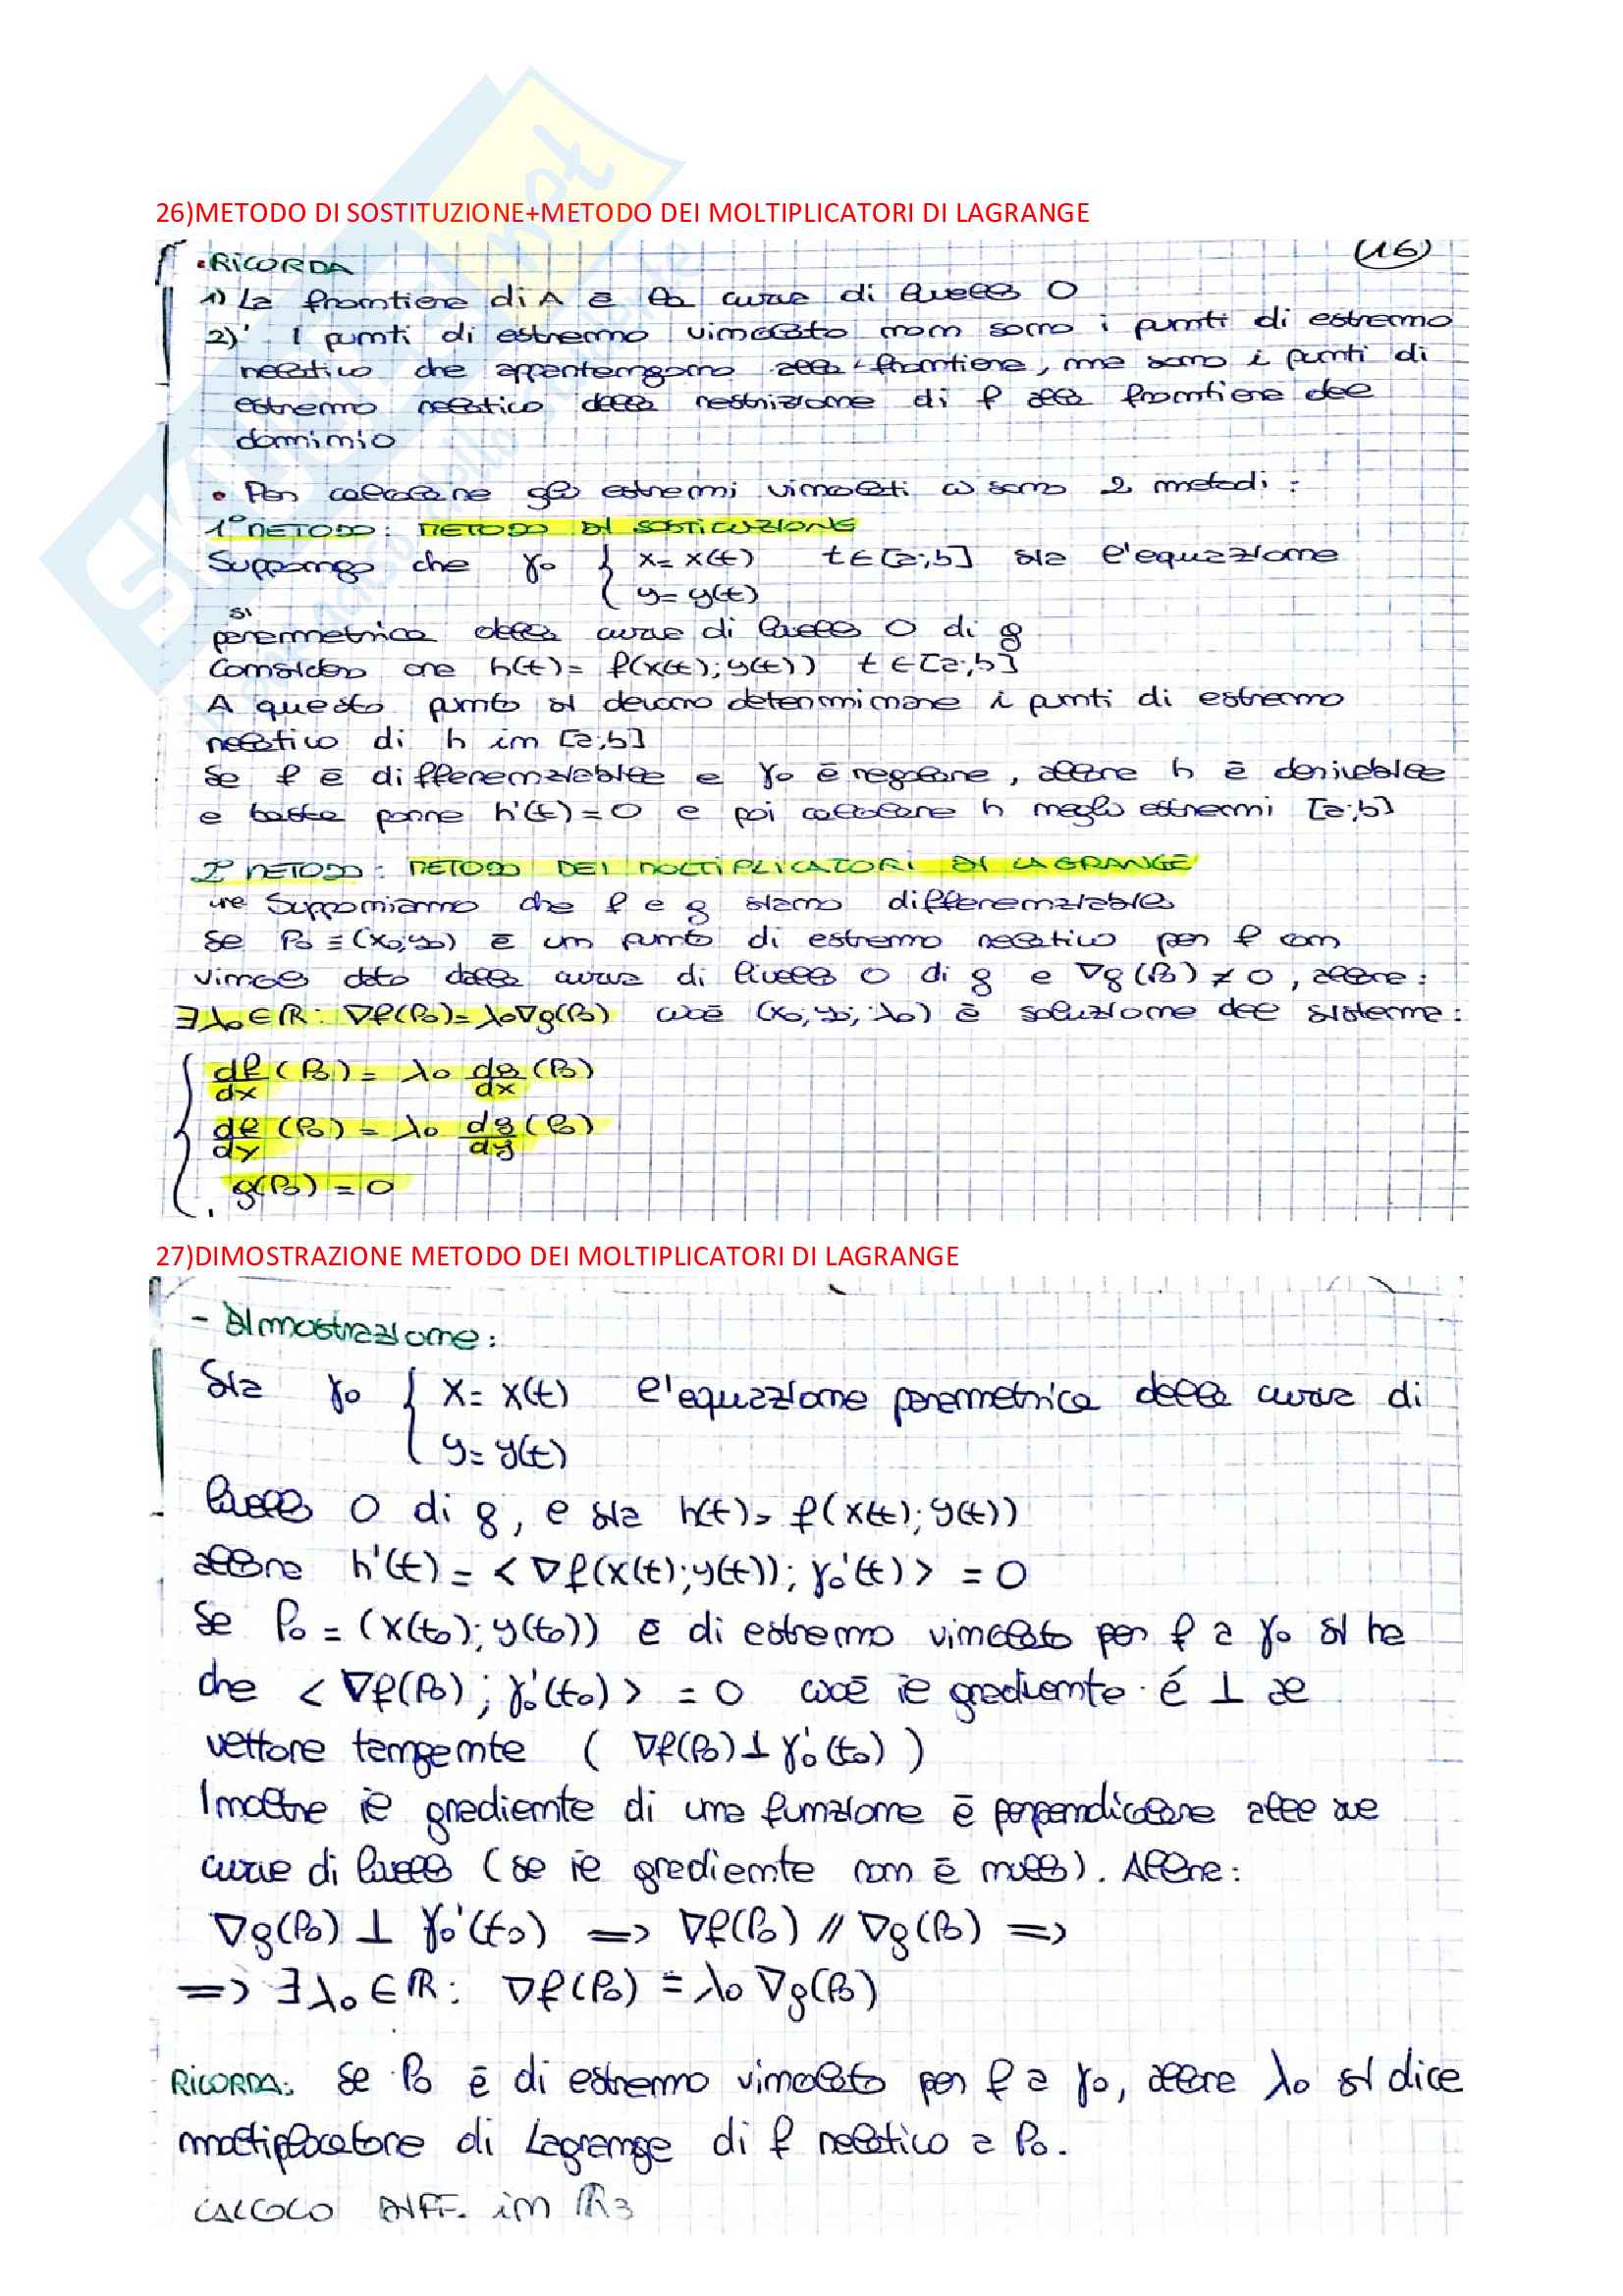 26)METODO DI SOSTITUZIONE+METODO DEI MOLTIPLICATORI DI LAGRANGE
(16)
• RICORDA
1) La frontiera di A è la curva di livello 0
2) I punti di estremo vincolato non sono i punti di estremo
relativo che appartengono alla frontiera, ma sono i punti di
estremo relativo della restrizione di f alla frontiera del
dominio
• Per calcolare gli estremi vincolati ci sono 2 metodi:
1° METODO: METODO DI SOSTITUZIONE
Suppongo che γ₀ { x = x(t) t∈[a;b] sia l'equazione
y = y(t)
si
parametrica della curva di livello 0 di g
Considero ora h(t) = f(x(t);y(t)) t∈[a;b]
A questo punto si devono determinare i punti di estremo
relativo di h in [a;b]
Se f è differenziabile e γ₀ è regolare, allora h è derivabile
e basta porre h'(t)=0 e poi calcolare h negli estremi [a;b]
2° METODO: METODO DEI MOLTIPLICATORI DI LAGRANGE
Supponiamo che f e g siano differenziabili
Se P₀ ≡ (x₀;y₀) è un punto di estremo relativo per f con
vincolo dato dalla curva di livello 0 di g e ∇g(P₀) ≠ 0, allora:
∃λ₀∈ℝ: ∇f(P₀)=λ₀∇g(P₀) cioè (x₀;y₀;λ₀) è soluzione del sistema:
{ df/dx (P₀) = λ₀ dg/dx (P₀)
df/dy (P₀) = λ₀ dg/dy (P₀)
g(P₀) = 0
27)DIMOSTRAZIONE METODO DEI MOLTIPLICATORI DI LAGRANGE
- Dimostrazione:
Sia γ₀ { x = x(t) l'equazione parametrica della curva di
y = y(t)
livello 0 di g, e sia h(t) = f(x(t);y(t))
allora h'(t) = < ∇f(x(t);y(t)); γ₀'(t) > = 0
Se P₀ = (x(t₀);y(t₀)) è di estremo vincolato per f a γ₀ si ha
che < ∇f(P₀); γ₀'(t₀) > = 0 cioè il gradiente é ⊥ al
vettore tangente ( ∇f(P₀) ⊥ γ₀'(t₀) )
Inoltre il gradiente di una funzione è perpendicolare alle sue
curve di livello (se il gradiente non è nullo). Allora:
∇g(P₀) ⊥ γ₀'(t₀) => ∇f(P₀) // ∇g(P₀) =>
=> ∃λ₀∈ℝ: ∇f(P₀) = λ₀ ∇g(P₀)
RICORDA: Se P₀ è di estremo vincolato per f a γ₀, allora λ₀ si dice
moltiplicatore di Lagrange di f relativo a P₀.
CALCOLO DIFF. in ℝ3